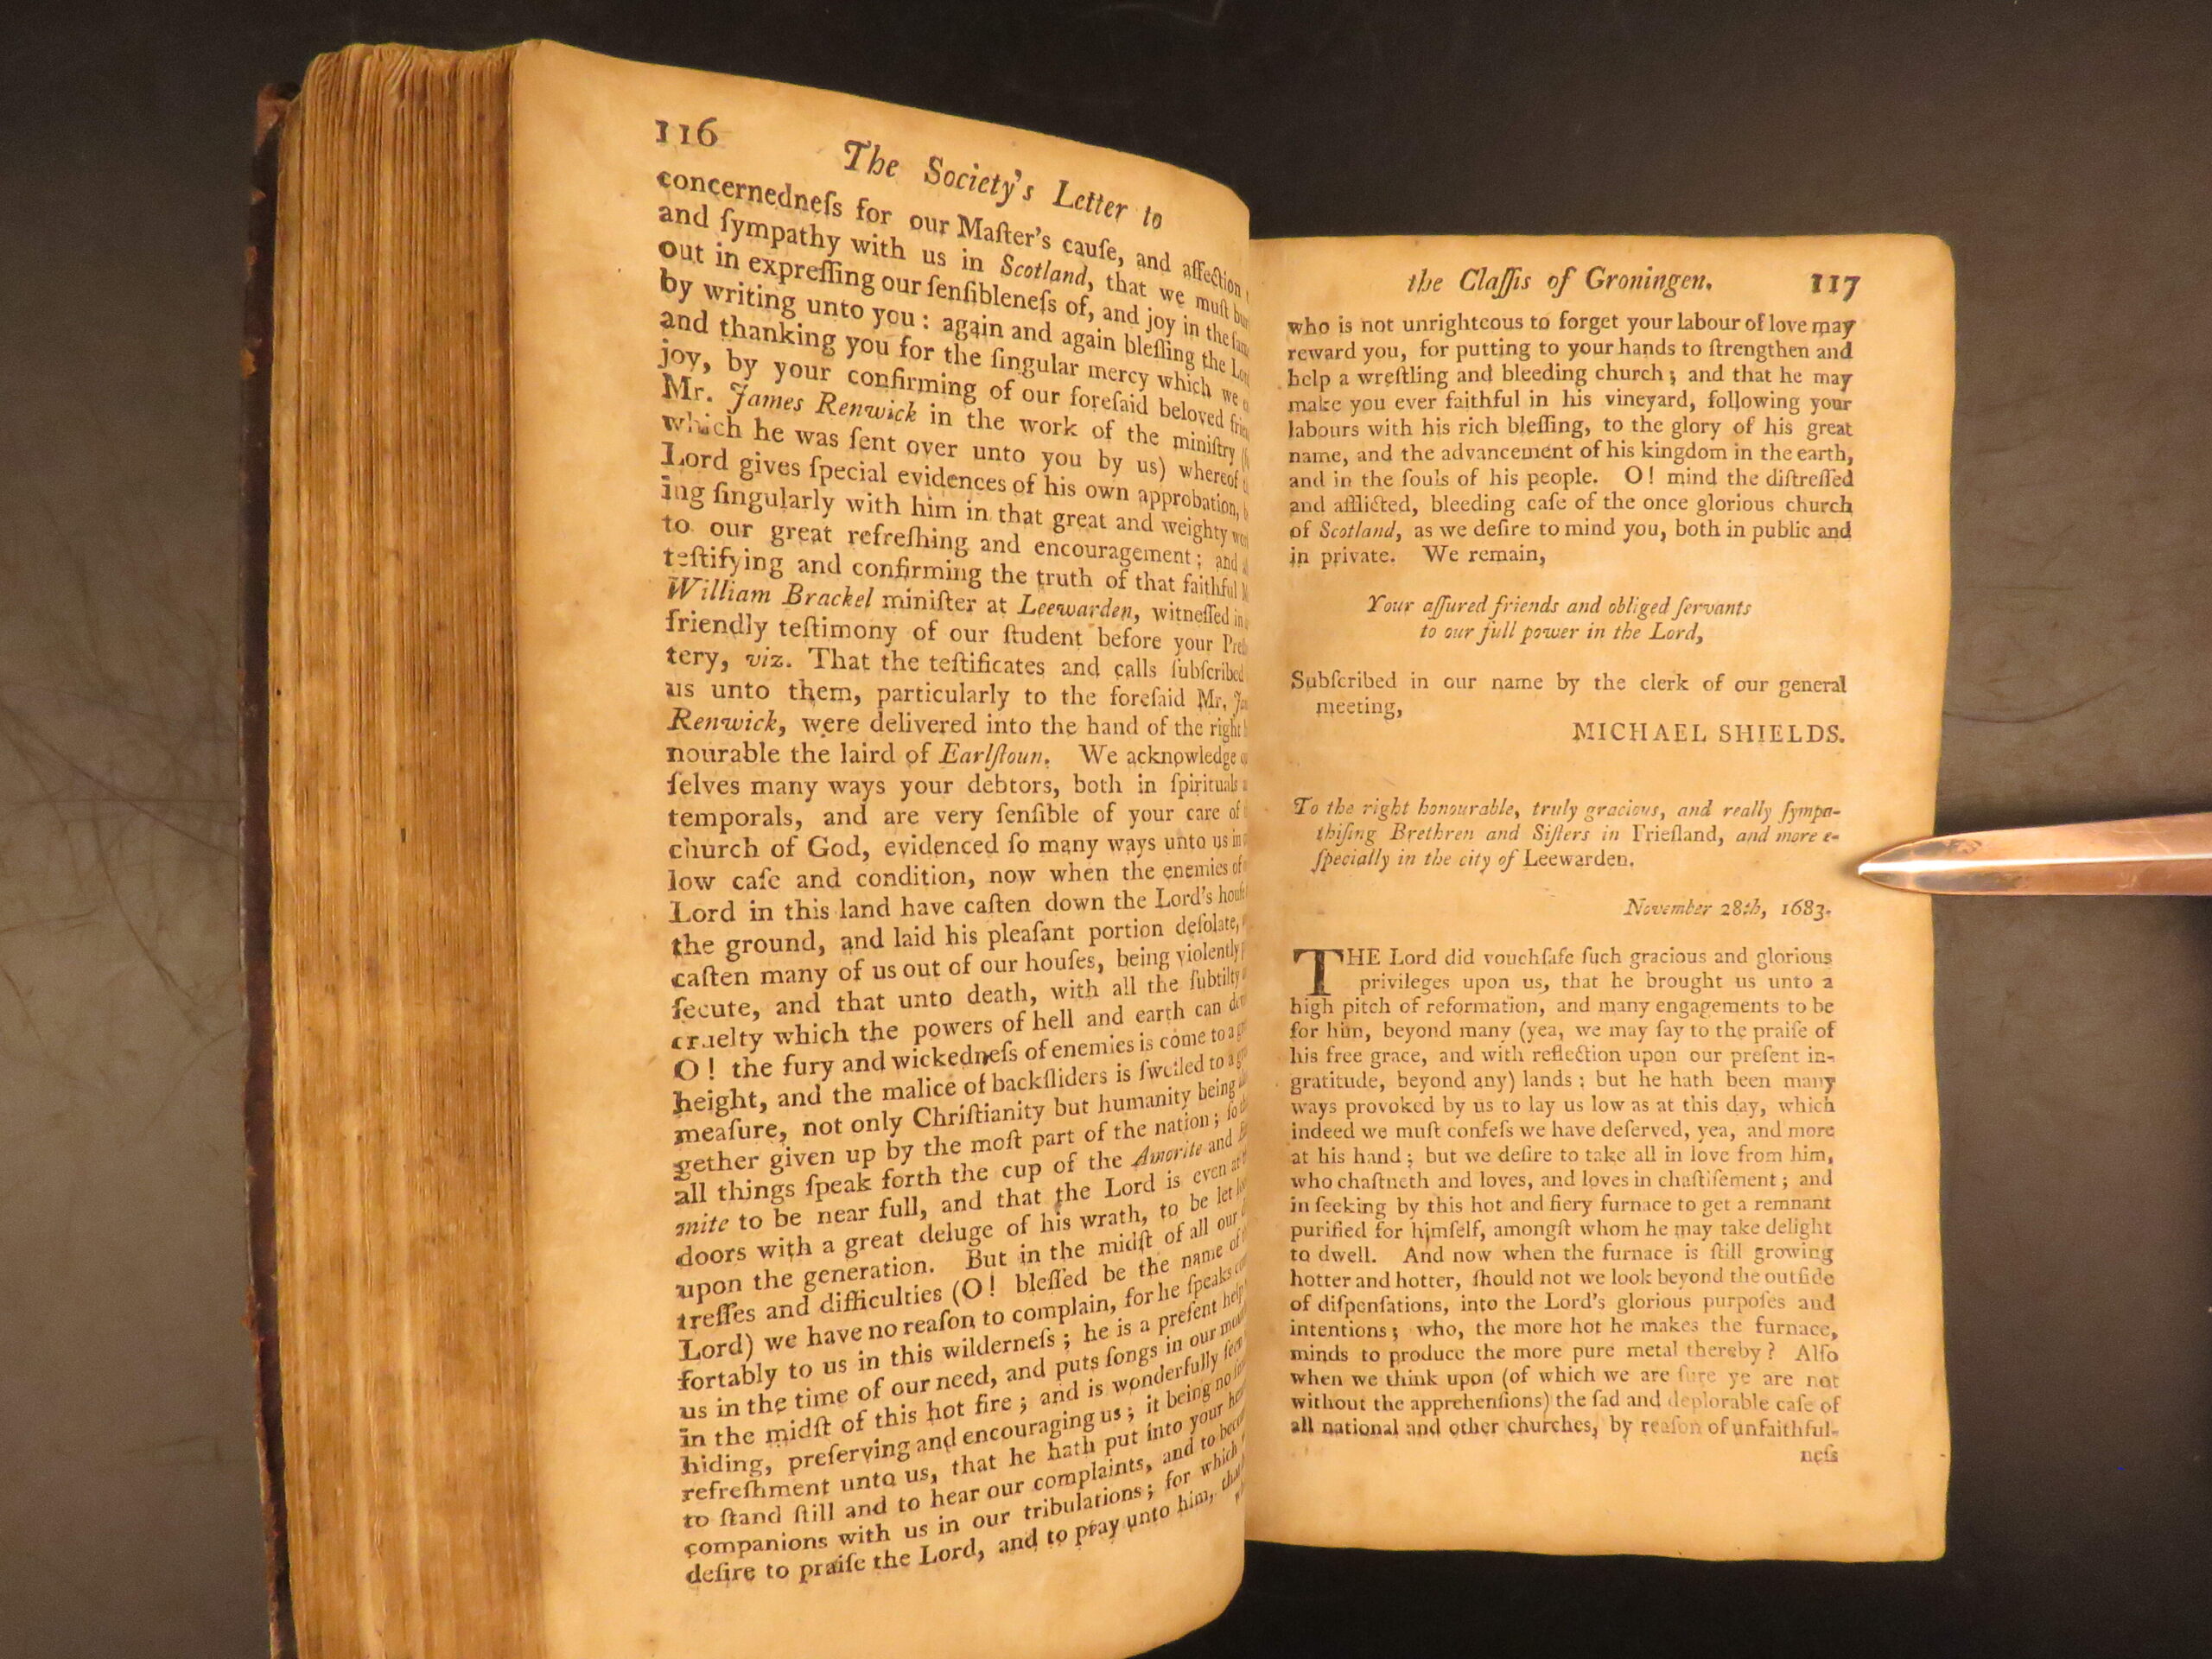 116
The Society's Letter to
concernedneſs for our Maſter's cauſe, and affection
and ſympathy with us in Scotland, that we muſt
out in expreſſing our ſenſibleneſs of, and joy in the
by writing unto you : again and again bleſſing the
and thanking you for the ſingular mercy which we
joy, by your confirming of our foreſaid beloved
Mr. James Renwick in the work of the miniſtry
which he was ſent over unto you by us) whereof
Lord gives ſpecial evidences of his own approbation,
ing ſingularly with him in that great and weighty
to our great refreſhing and encouragement ; and
teſtifying and confirming the truth of that faithful
William Brackel miniſter at Leewarden, witneſſed in
friendly teſtimony of our ſtudent before your
tery, viz. That the teſtificates and calls ſubſcribed
us unto them, particularly to the foreſaid Mr.
Renwick, were delivered into the hand of the right
nourable the laird of Earlſtoun. We acknowledge
ſelves many ways your debtors, both in ſpirituals
temporals, and are very ſenſible of your care of
church of God, evidenced ſo many ways unto us in
low caſe and condition, now when the enemies of
Lord in this land have caſten down the Lord's
the ground, and laid his pleaſant portion deſolate,
caſten many of us out of our houſes, being violently
ſecute, and that unto death, with all the ſubtilty
cruelty which the powers of hell and earth can
O ! the fury and wickedneſs of enemies is come to a
height, and the malice of backſliders is ſwelled to a
meaſure, not only Chriſtianity but humanity being
gether given up by the moſt part of the nation ; ſo
all things ſpeak forth the cup of the Amorite and
mite to be near full, and that the Lord is even at
doors with a great deluge of his wrath, to be let
upon the generation. But in the midſt of all our
treſſes and difficulties (O ! bleſſed be the name of
Lord) we have no reaſon to complain, for he ſpeaks
fortably to us in this wilderneſs ; he is a preſent help
us in the time of our need, and puts ſongs in our
in the midſt of this hot fire ; and is wonderfully
hiding, preſerving and encouraging us ; it being no
refreſhment unto us, that he hath put into your
to ſtand ſtill and to hear our complaints, and to
companions with us in our tribulations ; for which
deſire to praiſe the Lord, and to pray unto him,
the Claſſis of Groningen. 117
who is not unrighteous to forget your labour of love may
reward you, for putting to your hands to ſtrengthen and
help a wreſtling and bleeding church ; and that he may
make you ever faithful in his vineyard, following your
labours with his rich bleſſing, to the glory of his great
name, and the advancement of his kingdom in the earth,
and in the ſouls of his people. O ! mind the diſtreſſed
and afflicted, bleeding caſe of the once glorious church
of Scotland, as we deſire to mind you, both in public and
in private. We remain,
Your aſſured friends and obliged ſervants
to our full power in the Lord,
Subſcribed in our name by the clerk of our general
meeting,
MICHAEL SHIELDS.
To the right honourable, truly gracious, and really ſympa-
thiſing Brethren and Siſters in Frieſland, and more e-
ſpecially in the city of Leewarden.
November 28th, 1683.
THE Lord did vouchſafe ſuch gracious and glorious
privileges upon us, that he brought us unto a
high pitch of reformation, and many engagements to be
for him, beyond many (yea, we may ſay to the praiſe of
his free grace, and with reflection upon our preſent in-
gratitude, beyond any) lands ; but he hath been many
ways provoked by us to lay us low as at this day, which
indeed we muſt confeſs we have deſerved, yea, and more
at his hand ; but we deſire to take all in love from him,
who chaſtneth and loves, and loves in chaſtiſement ; and
in ſeeking by this hot and fiery furnace to get a remnant
purified for himſelf, amongſt whom he may take delight
to dwell. And now when the furnace is ſtill growing
hotter and hotter, ſhould not we look beyond the outſide
of diſpenſations, into the Lord's glorious purpoſes and
intentions ; who, the more hot he makes the furnace,
minds to produce the more pure metal thereby ? Alſo
when we think upon (of which we are ſure ye are not
without the apprehenſions) the ſad and deplorable caſe of
all national and other churches, by reaſon of unfaithful-
neſs